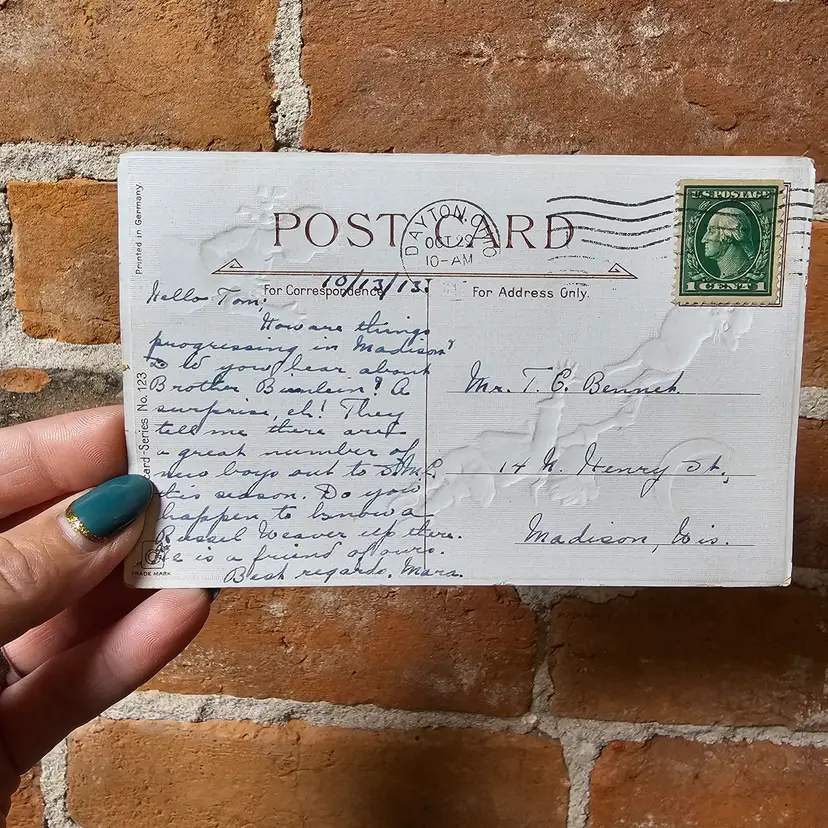 POST CARD
DAYTON, O.
OCT 29
10-AM
U.S. POSTAGE
1 CENT 1
Printed in Germany
For Correspondence
For Address Only.
10/13/13.
Hello Tom:
How are things
progressing in Madison?
Did you hear about
Brother ? A
surprise, eh! They
tell me there are
a great number of
new boys out to
this season. Do you
happen to know a
Russel Weaver up there.
He is a friend of ours.
Best regards, Mara.
Mr. T. E. Bennet.
14 N. Henry St.,
Madison, Wis.
ard-Series No. 123
TRADE MARK